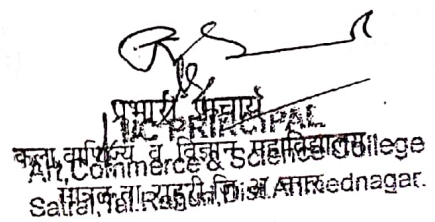 प्रभारी प्राचार्य
I/C PRINCIPAL
कला, वाणिज्य व विज्ञान महाविद्यालय
Art, Commerce & Science College
सात्रळ, ता. राहुरी, जि. अ. नगर
Satral, Tal. Rahuri, Dist. Ahmednagar.